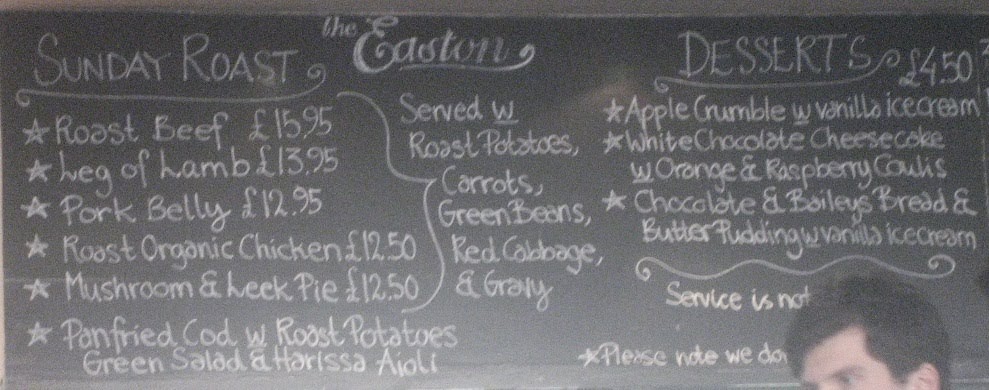 the Easton
SUNDAY ROAST
Roast Beef £15.95
Leg of Lamb £13.95
Pork Belly £12.95
Roast Organic Chicken £12.50
Mushroom & Leek Pie £12.50
Panfried Cod w Roast Potatoes
Green Salad & Harissa Aioli
Served w
Roast Potatoes,
Carrots,
Green Beans,
Red Cabbage,
& Gravy
DESSERTS £4.50
Apple Crumble w vanilla ice cream
White Chocolate Cheesecake
w Orange & Raspberry Coulis
Chocolate & Baileys Bread &
Butter Pudding w vanilla ice cream
Service is not
Please note we do